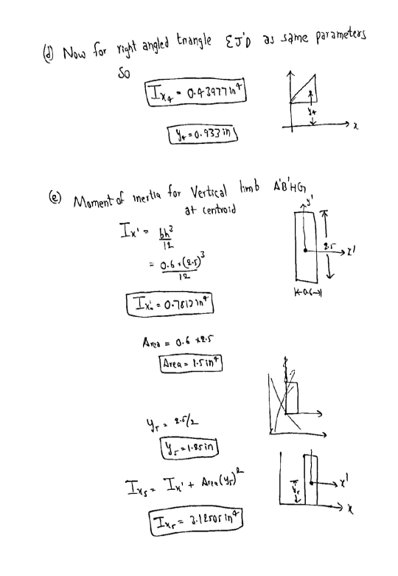 (d) Now for right angled triangle EJ'D as same parameters
So
Ix₄ = 0.43977 in⁴
y₄ = 0.933 in
y₄
x
(e) Moment of inertia for Vertical limb A'B'HG
at centroid
Ix' = bh³/12
= 0.6 × (2.5)³/12
Ix' = 0.7812 in⁴
y'
2.5
x'
0.6
Area = 0.6 × 2.5
Area = 1.5 in⁴
y₅ = 2.5/2
y₅ = 1.25 in
Ix₅ = Ix' + Area (y₅)²
Ix₅ = 3.12505 in⁴
y₅
x'
x